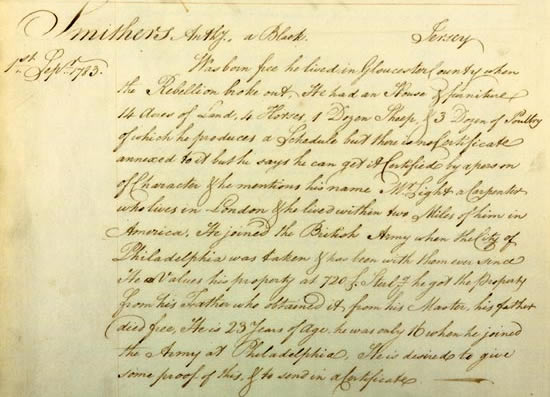 Smithers Anthy. a Black. Jersey
1st. Sept. 1783.
Was born free he lived in Gloucester County when
the Rebellion broke out. He had an House & furniture
14 Acres of Land, 4 Horses, 1 Dozen Sheep, & 3 Dozen of Poultry
of which he produces a Schedule but there is no Certificate
annexed to it but he says he can get it Certified by a person
of Character & he mentions his name Mr. Light a Carpenter
who lives in London & he lived within two Miles of him in
America. He joined the British Army when the City of
Philadelphia was taken & has been with them ever since
He Values his property at 720 £. Sterlg. he got the Property
from his Father who obtained it from his Master, his father
died free. He is 23 Years of age. he was only 16 when he joined
the Army at Philadelphia. He is desired to give
some proof of this, & to send in a Certificate.